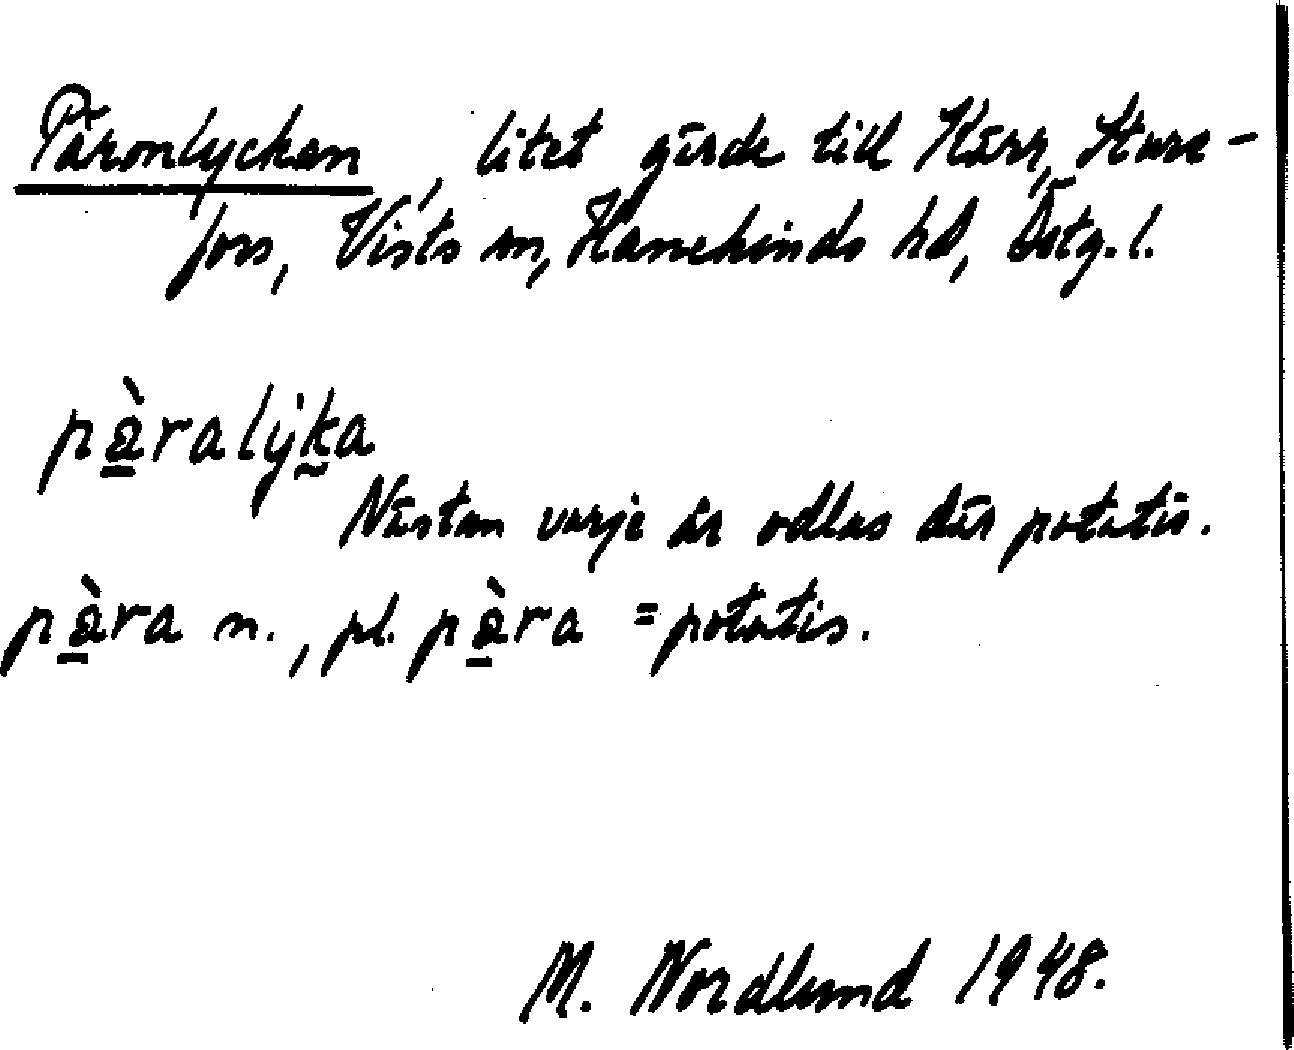 Päronlyckan, litet gärde till Kärr, Sture-
fors, Vists sn, Hanekinds hd, Östg. l.
pàralyka
Nästan varje år odlas där potatis.
pàra n., pl. pàra = potatis.
M. Nordlund 1948.